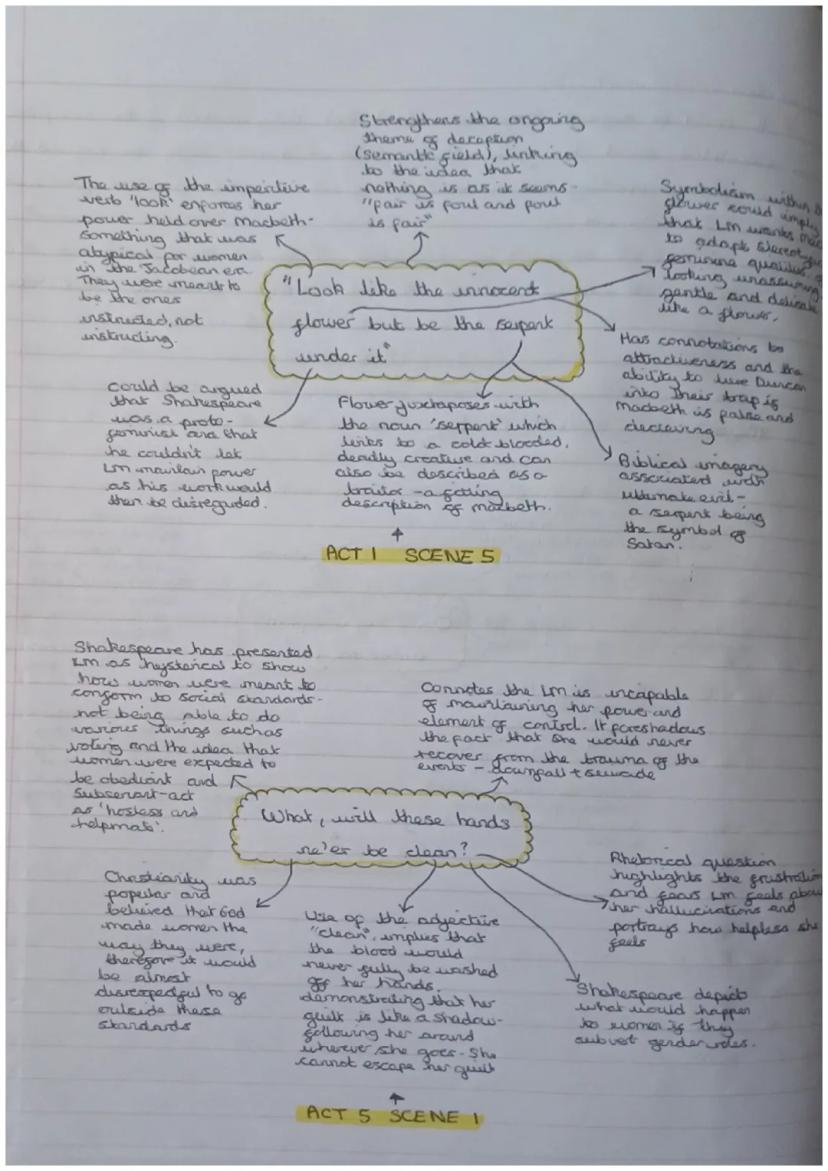 Strengthens the ongoing
theme of deception
(semantic field), linking
to the idea that
nothing is as it seems-
"fair is foul and foul
is fair"
The use of the imperitive
verb 'look' enforces her
power held over Macbeth-
Something that was
atypical for women
in the Jacobean era.
They were meant to
be the ones
instructed, not
instructing.
Symbolism within
flower could imply
that LM wants
to adapt
feminine qualities
looking unassuming
gentle and delicate
like a flower.
"Look like the innocent
flower but be the serpent
under it"
Has connotations to
attractiveness and the
ability to lure Duncan
into their trap if
Macbeth is false and
decieving
Could be argued
that Shakespeare
was a proto-
feminist and that
he couldn't let
LM maintain power
as his work would
then be disregarded.
Flower juxtaposes with
the noun 'serpent' which
links to a cold blooded,
deadly creature and can
also be described as a
traitor - a fitting
description of macbeth.
Biblical imagery
associated with
ultimate evil-
a serpent being
the symbol of
Satan.
ACT 1 SCENE 5
Shakespeare has presented
LM as hysterical to show
how women were meant to
conform to social standards-
not being able to do
various things such as
voting and the idea that
women were expected to
be obediant and
Subservant-act
as 'hostess and
helpmate'.
Connotes the LM is incapable
of maintaining her power and
element of control. It foreshadows
the fact that she would never
recover from the trauma of the
events - downfall + suicide
What, will these hands
ne'er be clean?
Christianity was
popular and
believed that God
made women the
way they were,
therefore it would
be almost
disrespectful to go
outside these
standards
Use of the adjective
"clean", implies that
the blood would
never fully be washed
off her hands.
demonstrating that her
guilt is like a shadow-
following her around
wherever she goes. She
cannot escape her guilt
Rhetorical question
highlights the frustration
and fears LM feels about
her hallucinations and
portrays how helpless she
feels
Shakespeare depicts
what would happen
to women if they
subvert gender roles.
ACT 5 SCENE 1